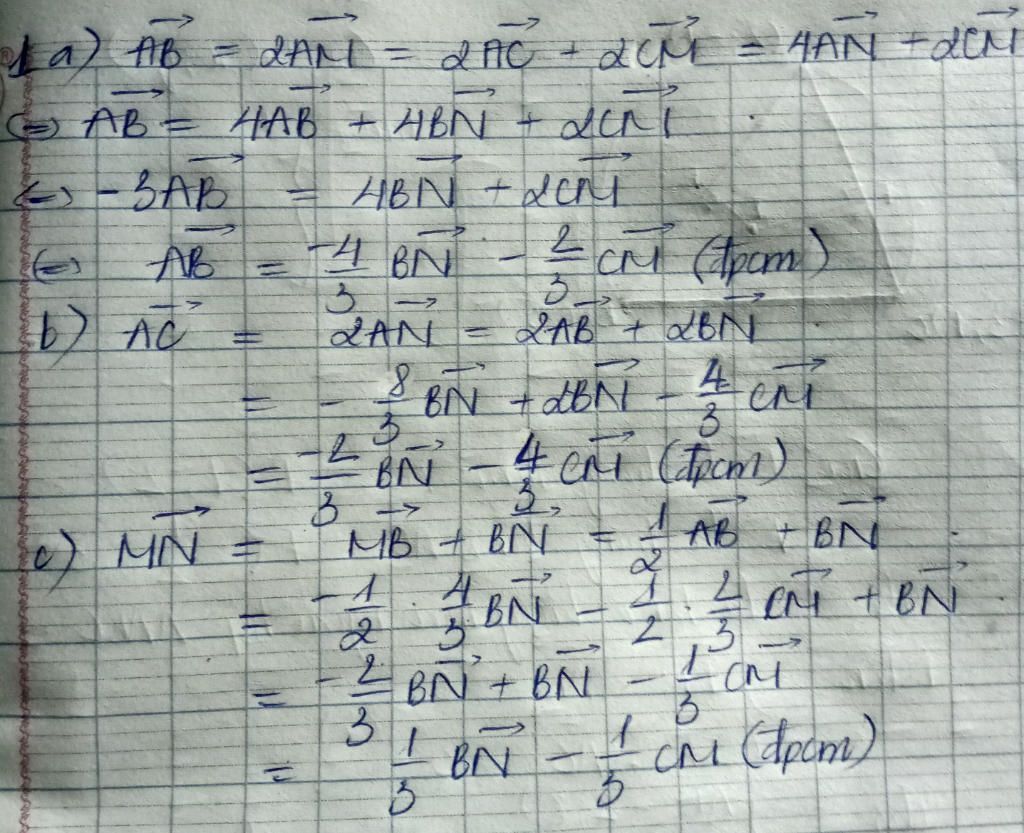 1 a) $\overrightarrow{AB} = 2\overrightarrow{AM} = 2\overrightarrow{AC} + 2\overrightarrow{CM} = 4\overrightarrow{AN} + 2\overrightarrow{CM}$
$\Leftrightarrow \overrightarrow{AB} = 4\overrightarrow{AB} + 4\overrightarrow{BN} + 2\overrightarrow{CM}$
$\Leftrightarrow -3\overrightarrow{AB} = 4\overrightarrow{BN} + 2\overrightarrow{CM}$
$\Leftrightarrow \overrightarrow{AB} = \frac{-4}{3}\overrightarrow{BN} - \frac{2}{3}\overrightarrow{CM}$ (đpcm)
b) $\overrightarrow{AC} = 2\overrightarrow{AN} = 2\overrightarrow{AB} + 2\overrightarrow{BN}$
$= -\frac{8}{3}\overrightarrow{BN} + 2\overrightarrow{BN} - \frac{4}{3}\overrightarrow{CM}$
$= \frac{-2}{3}\overrightarrow{BN} - \frac{4}{3}\overrightarrow{CM}$ (đpcm)
c) $\overrightarrow{MN} = \overrightarrow{MB} + \overrightarrow{BN} = \frac{1}{2}\overrightarrow{AB} + \overrightarrow{BN}$
$= \frac{-1}{2} \cdot \frac{4}{3}\overrightarrow{BN} - \frac{1}{2} \cdot \frac{2}{3}\overrightarrow{CM} + \overrightarrow{BN}$
$= \frac{-2}{3}\overrightarrow{BN} + \overrightarrow{BN} - \frac{1}{3}\overrightarrow{CM}$
$= \frac{1}{3}\overrightarrow{BN} - \frac{1}{3}\overrightarrow{CM}$ (đpcm)